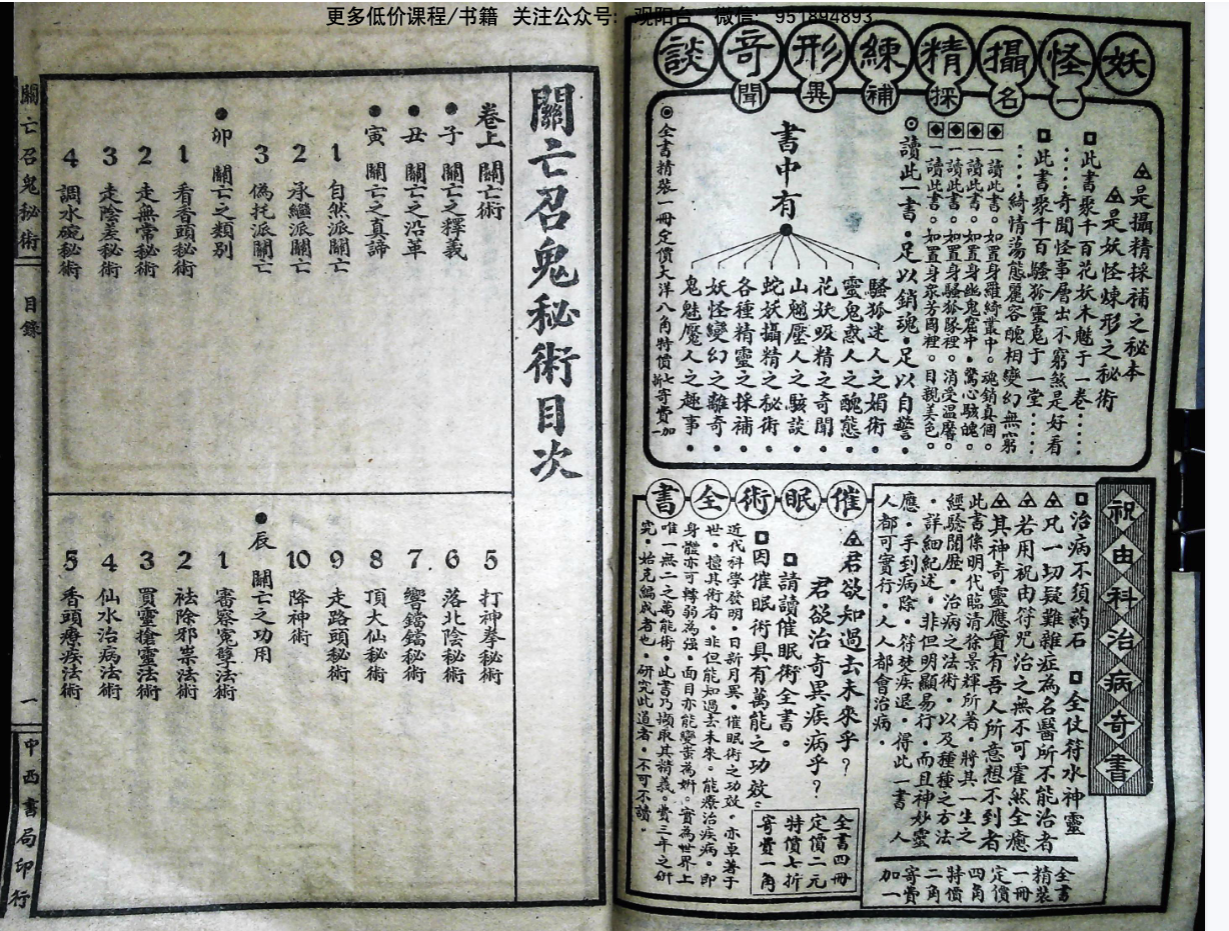 更多低价课程/书籍 关注公众号：观阳台 微信：951894893
妖怪攝精練形奇談
一名採補異聞
是攝精採補之秘本
是妖怪煉形之秘術
此書聚千百花妖木魅于一卷‥‥
‥‥奇聞怪事層出不窮煞是好看
此書聚千百騷狐靈鬼于一堂‥‥
‥‥綺情蕩態麗容醜相變幻無窮
一讀此書。如置身羅綺叢中。魂銷真個。
一讀此書。如置身幽鬼窟中。驚心駭魄。
一讀此書。如置身騷狐隊裡。消受温馨。
一讀此書。如置身衆芳國裡。目親美色。
讀此一書。足以銷魂。足以自警。
書中有
騷狐迷人之媚術
靈鬼惑人之醜態
花妖吸精之奇聞
山魈壓人之駭談
蛇妖攝精之秘術
各種精靈之採補
妖怪變幻之離奇
鬼魅魘人之趣事
全書精裝一冊定價大洋八角特價七折寄費加一
祝由科治病奇書
治病不須葯石 全仗符水神靈
凡一切疑難雜症為名醫所不能治者
若用祝由符咒治之無不可霍然全癒
其神奇靈應實有吾人所意想不到者
此書係明代臨清徐景輝所著。將其一生之
經驗閱歷。治病之法術。以及種種之方法
。詳細紀述。非但明顯易行。而且神妙靈
應。手到病除。符焚疾退。得此一書。人
人都可實行。人人都會治病。
全書
精裝
一冊
定價
四角
特價
二角
寄費
加一
催眠術全書
君欲知過去未來乎？
君欲治奇異疾病乎？
請讀催眠術全書。
因催眠術具有萬能之功效。
近代科學發明。日新月異。催眠術之功效。亦卓著于
世。擅其術者。非但能知過去未來。能療治疾病。即
身體亦可轉弱為强。面目亦能變蚩為妍。實為世界上
唯一無二之萬能術。此書乃擷取其精義。費三年之研
究。始克編成者也。研究此道者。不可不讀。
全書四冊
定價二元
特價七折
寄費一角
關亡召鬼秘術目次
卷上 關亡術
●子 關亡之釋義
●丑 關亡之沿革
●寅 關亡之真諦
1 自然派關亡
2 承繼派關亡
3 偽托派關亡
●卯 關亡之類別
1 看香頭秘術
2 走無常秘術
3 走陰差秘術
4 調水碗秘術
5 打神拳秘術
6 落北陰秘術
7 響鐺鐺秘術
8 頂大仙秘術
9 走路頭秘術
10 降神術
●辰 關亡之功用
1 審察寃孽法術
2 祛除邪祟法術
3 買靈搶靈法術
4 仙水治病法術
5 香頭療疾法術
關亡召鬼秘術 目錄 一 中西書局印行